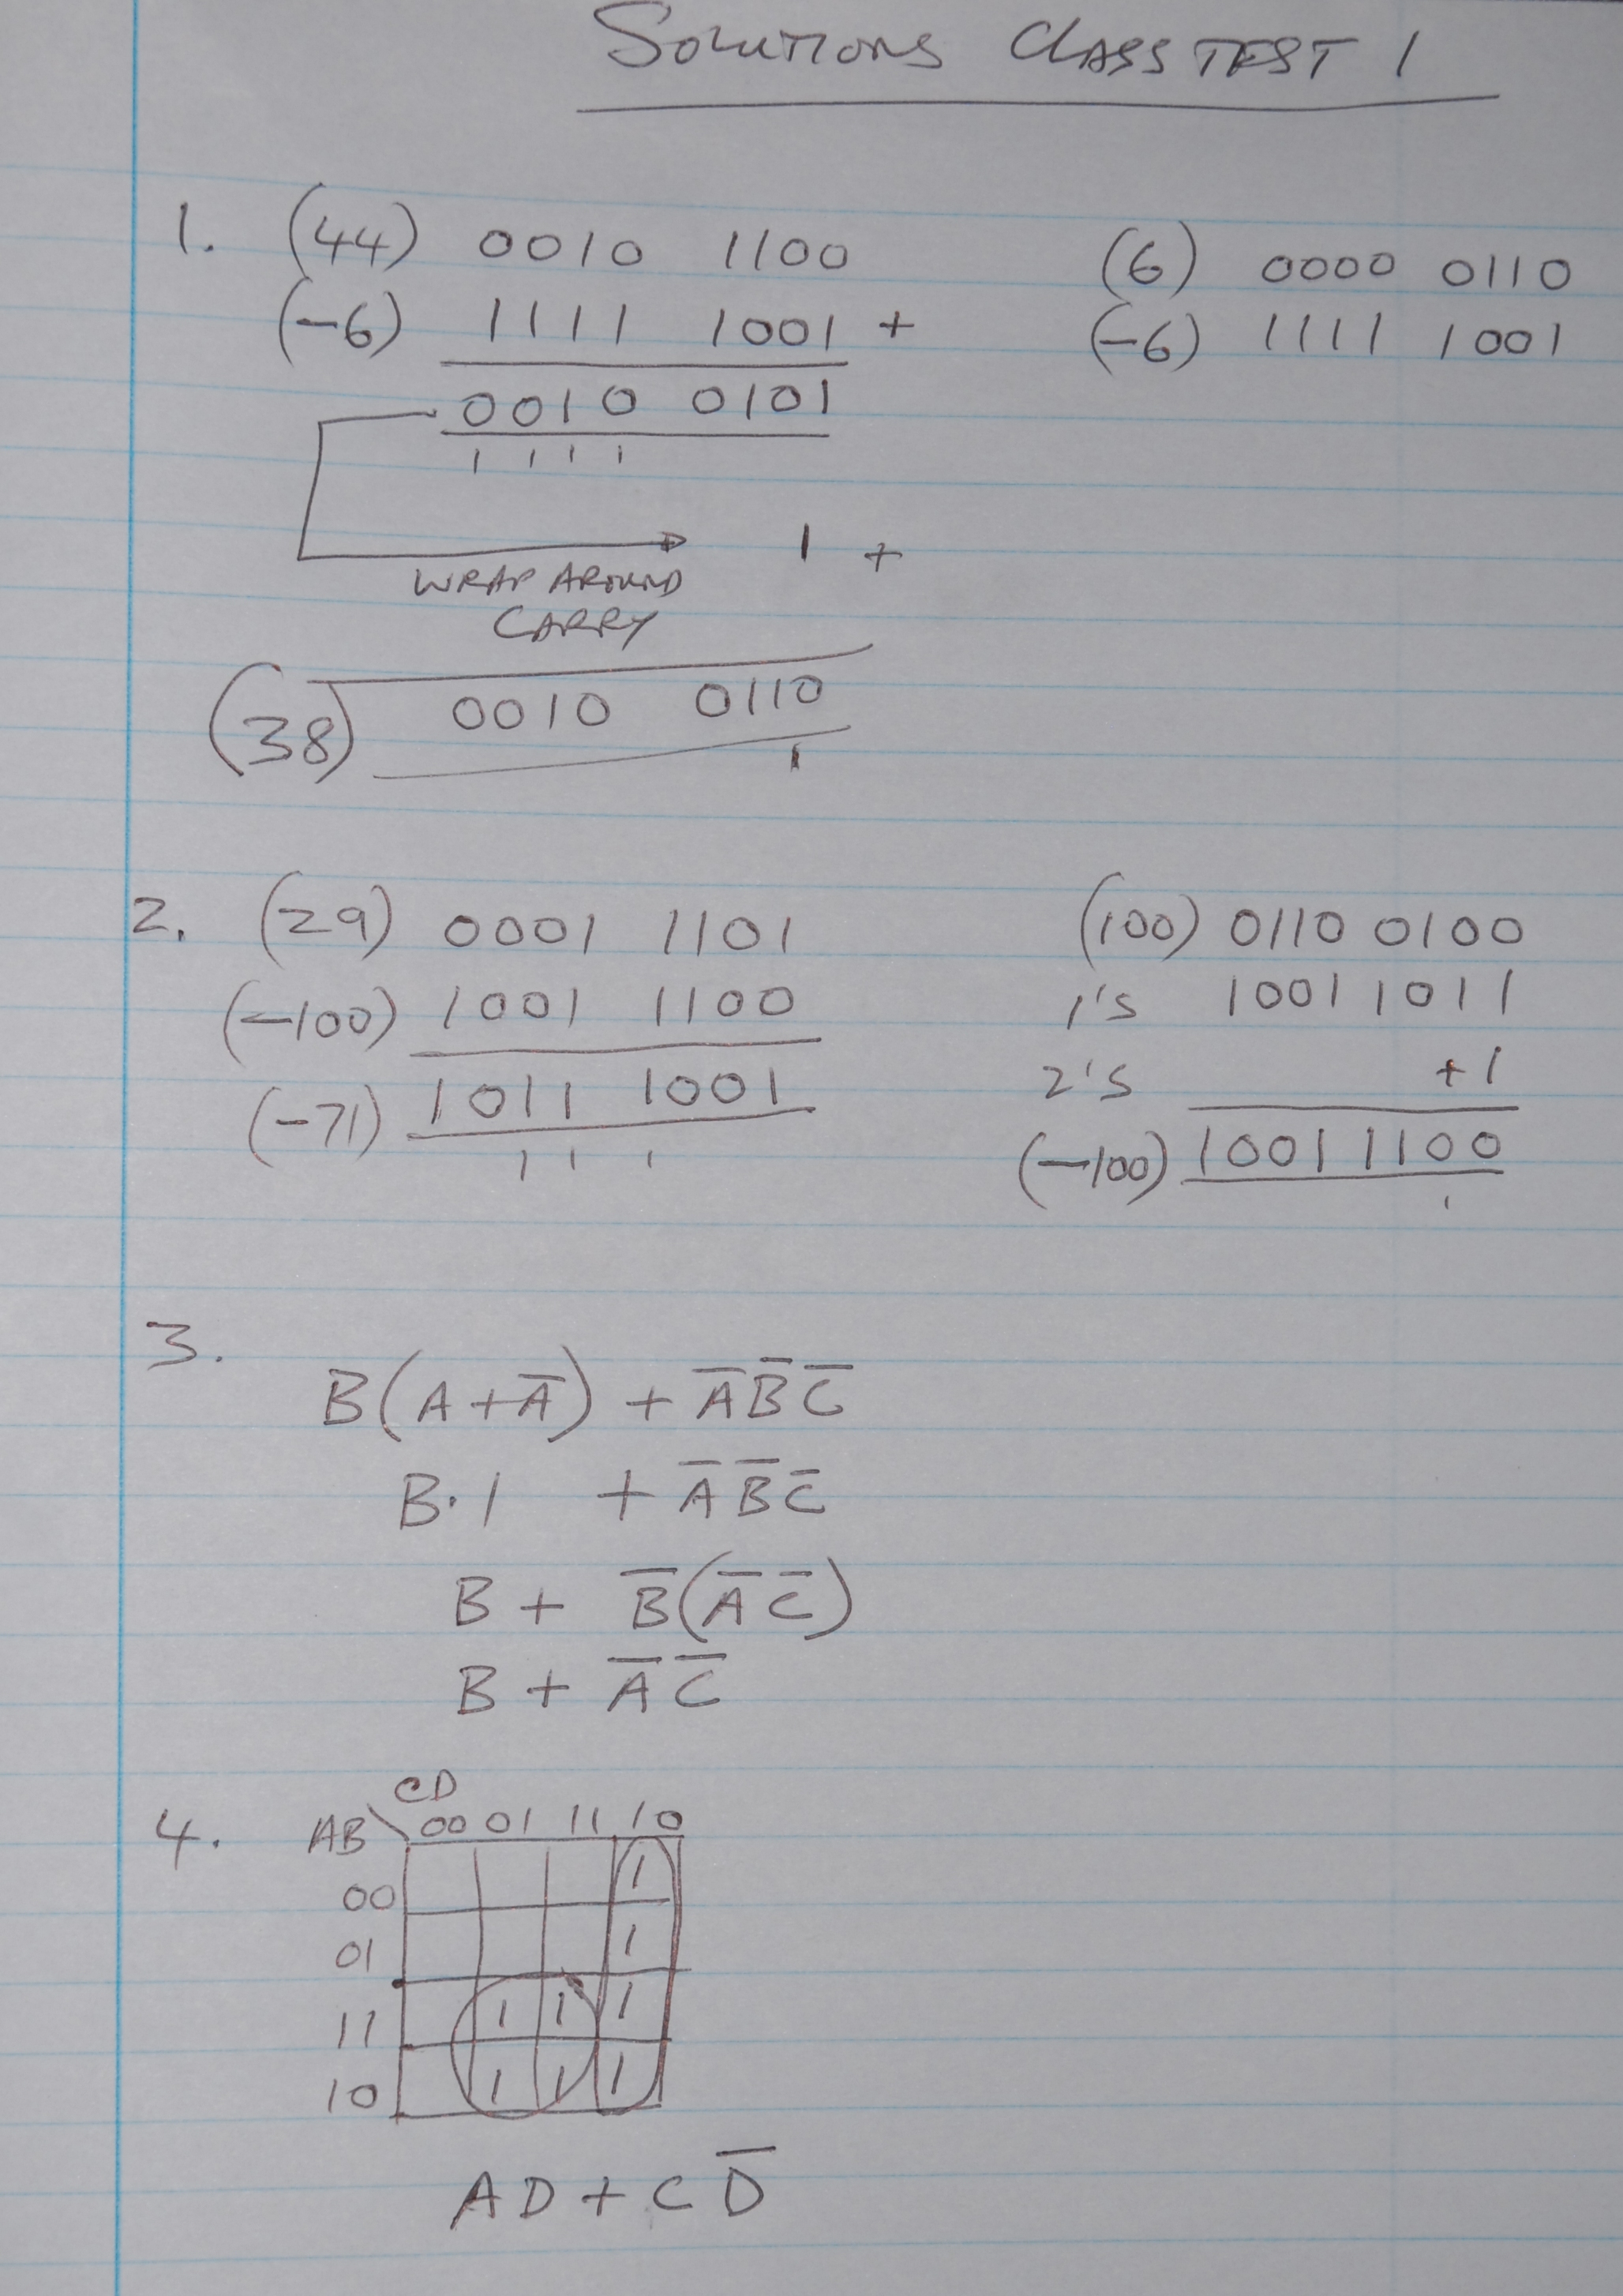 SOLUTIONS CLASS TEST 1
1. (44) 0010 1100 (6) 0000 0110
(-6) 1111 1001 + (-6) 1111 1001
0010 0101
1 1 1 1
1 +
WRAP AROUND
CARRY
(38) 0010 0110
1
2. (29) 0001 1101 (100) 0110 0100
(-100) 1001 1100 1's 1001 1011
2's +1
(-71) 1011 1001 (-100) 1001 1100
1 1 1 1
3.
B(A+A̅) + A̅B̅C̅
B·1 + A̅B̅C̅
B + B̅(A̅C̅)
B + A̅C̅
4. CD
AB 00 01 11 10
00 1
01 1
11 1 1 1
10 1 1 1
AD + CD̅